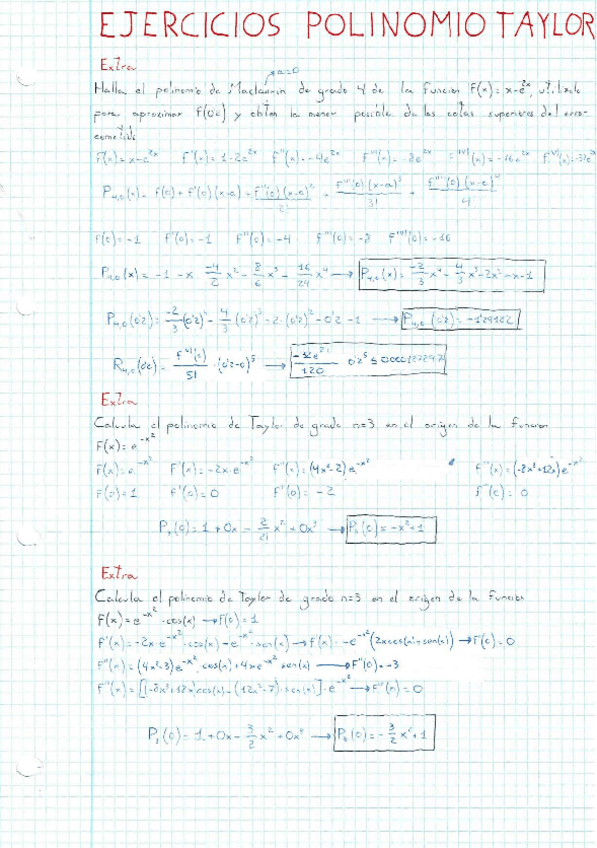 EJERCICIOS POLINOMIO TAYLOR
Extra
a=0
Halla el polinomio de Maclaurin de grado 4 de la funcion F(x)=x-e^2x, utilizalo
para aproximar f(0'2) y obten la menor posible de las cotas superiores del error
cometido
F(x)=x-e^2x F'(x)=1-2e^2x F''(x)=-4e^2x F'''(x)=-8e^2x F^IV(x)=-16e^2x F^V(x)=-32e^2x
P4,0(x)= f(0)+f'(0)(x-0)+ f''(0)(x-0)^2/2! + f'''(0)(x-0)^3/3! + f''''(0)(x-0)^4/4
F(0)=-1 F'(0)=-1 F''(0)=-4 F'''(0)=-8 F^IV(0)=-16
P4,0(x)=-1-x -4/2 x^2 -8/6 x^3 -16/24 x^4 → P4,0(x)= -2/3 x^4 - 4/3 x^3 -2x^2 -x-1
P4,0(0'2)= -2/3 (0'2)^4 - 4/3 (0'2)^3 -2·(0'2)^2 -0'2 -1 → P4,0(0'2)=
R4,0(0'2)= /5! ·(0'2-0)^5 → /120 0'2^5 ≤
Extra
Calcula el polinomio de Taylor de grado n=3 en el origen de la funcion
F(x)=e^-x^2
F(x)=e^-x^2 F'(x)=-2x·e^-x^2 F''(x)=(4x^2-2)e^-x^2 F'''(x)=(-8x^3+12x)e^-x^2
F(0)=1 F'(0)=0 F''(0)=-2 F'''(0)=0
(0)=1+0x- 2/2! x^2+0x^3 → (0)=-x^2+1
Extra
Calcula el polinomio de Taylor de grado n=3 en el origen de la funcion
F(x)=e^-x^2·cos(x) → F(0)=1
F'(x)=-2x·e^-x^2·cos(x)-e^-x^2·sen(x) → f'(x)=-e^-x^2(2xcos(x)+sen(x)) → F'(0)=0
F''(x)=(4x^2-3)e^-x^2·cos(x)+4xe^-x^2 sen(x) → F''(0)=-3
F'''(x)=[(-8x^3+18x)cos(x)-(12x^2-7)·sen(x)]·e^-x^2 → F'''(0)=0
(0)=1+0x- 3/2 x^2+0x^3 → (0)=- 3/2 x^2+1